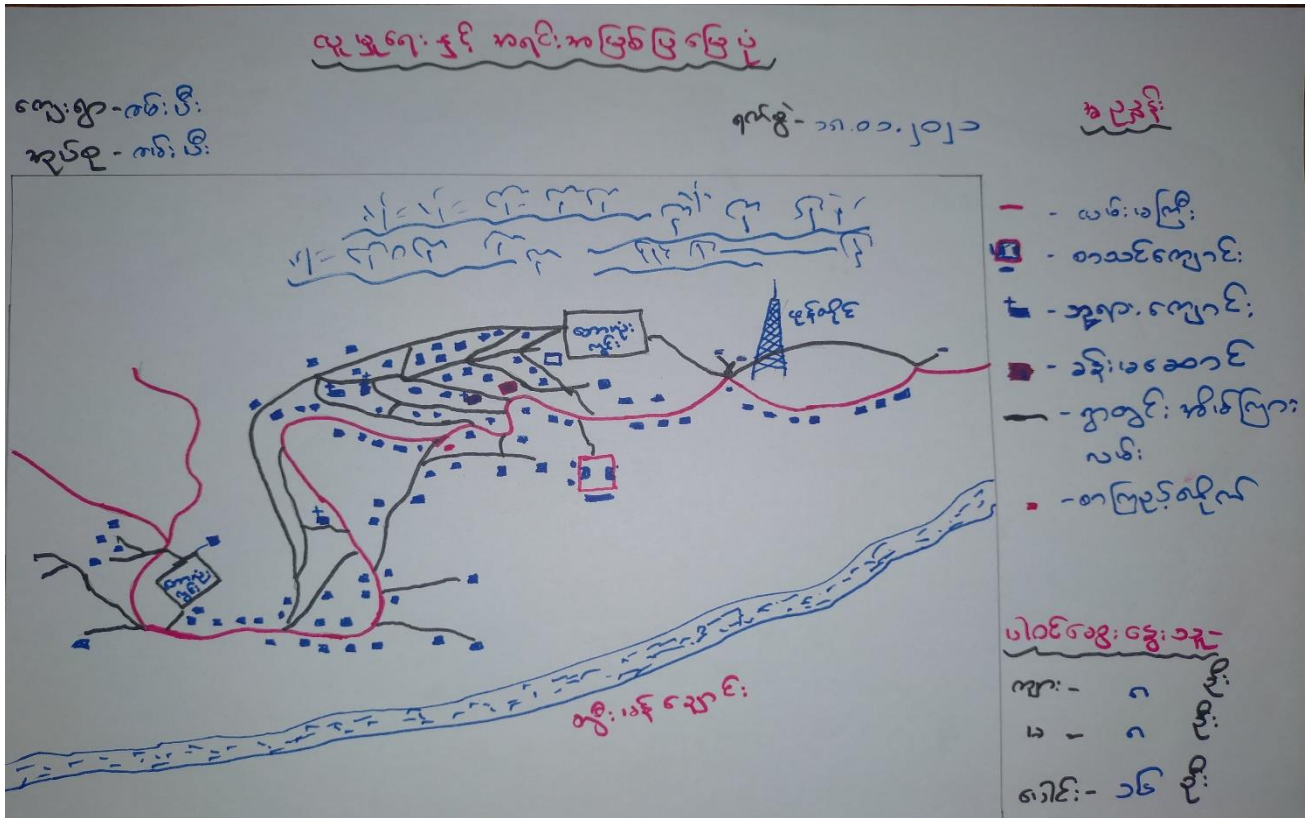 လူမှုရေးနှင့် အရင်းအမြစ်ပြမြေပုံ
ကျေးရွာ - ဇမ်းပီး
အုပ်စု - ဇမ်းပီး
ရက်စွဲ - ၁၈.၀၁.၂၀၂၁
အညွှန်း
- လမ်းမကြီး
- စာသင်ကျောင်း
- ဘုရား.ကျောင်း
- ခန်းမဆောင်
- ရွာတွင်းအိမ်ကြား
လမ်း
- စာကြည့်တိုက်
ဘောလုံး
ကွင်း
ဖုန်းတိုင်
ဘောလုံး
ကွင်း
ချောင်း
ပါဝင်ဆွေးနွေးသူ-
ကျား - ၈ ဦး
မ - ၈ ဦး
ပေါင်း - ၁၆ ဦး